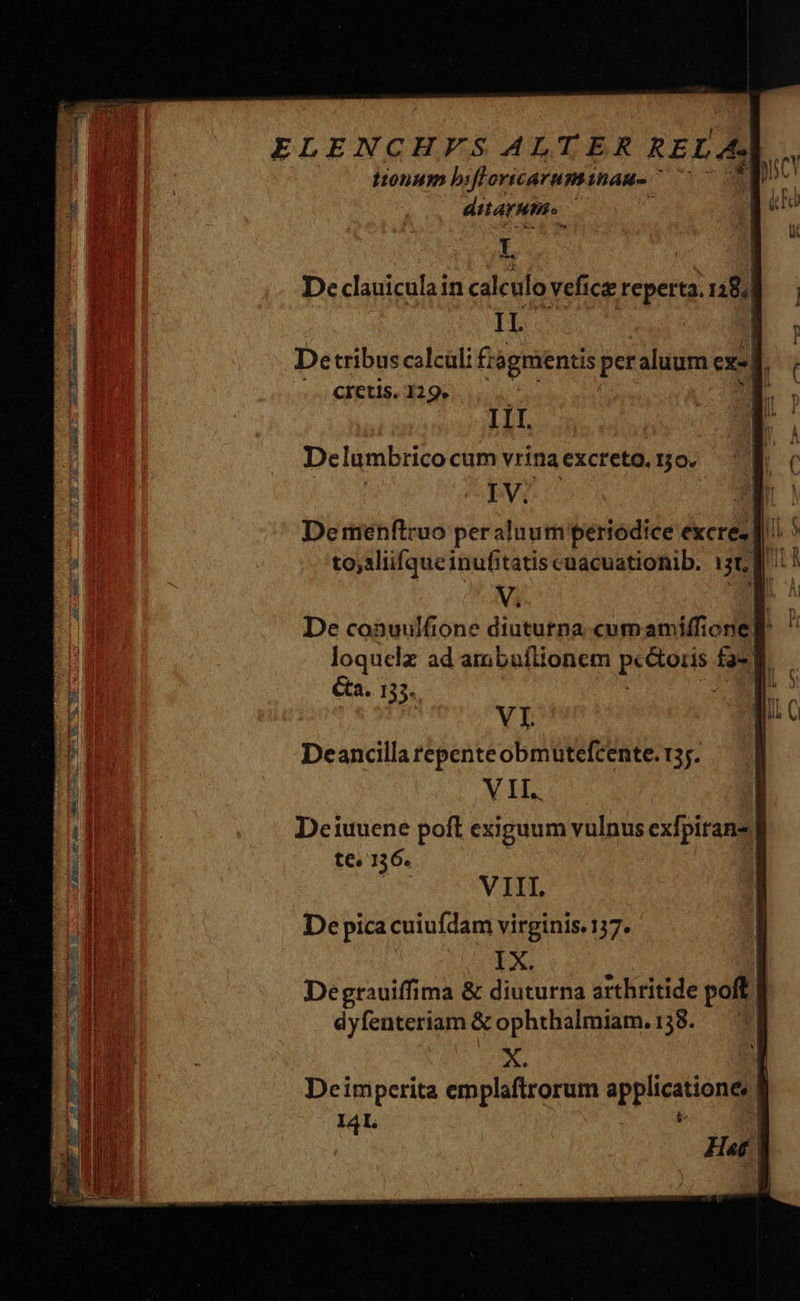 ELENCHVS ALTER RELA-
tionum historicarum inau-
ditarum.
I.
De clauicula in calculo vesicæ reperta. 128.
II.
De tribus calculi fragmentis per aluum ex-
cretis. 129.
III.
De lumbrico cum vrina excreto. 130.
IV.
De menstruo per aluum periodice excre-
to, aliisque inusitatis euacuationib. 131.
V.
De conuulsione diuturna cum amissione
loquelæ ad ambustionem pectoris fa-
cta. 133.
VI.
De ancilla repente obmutescente. 135.
VII.
De iuuene post exiguum vulnus exspiran-
te. 136.
VIII.
De pica cuiusdam virginis. 137.
IX.
De grauissima & diuturna arthritide post
dysenteriam & ophthalmiam. 138.
X.
De imperita emplastrorum applicatione.
141.
Hæc